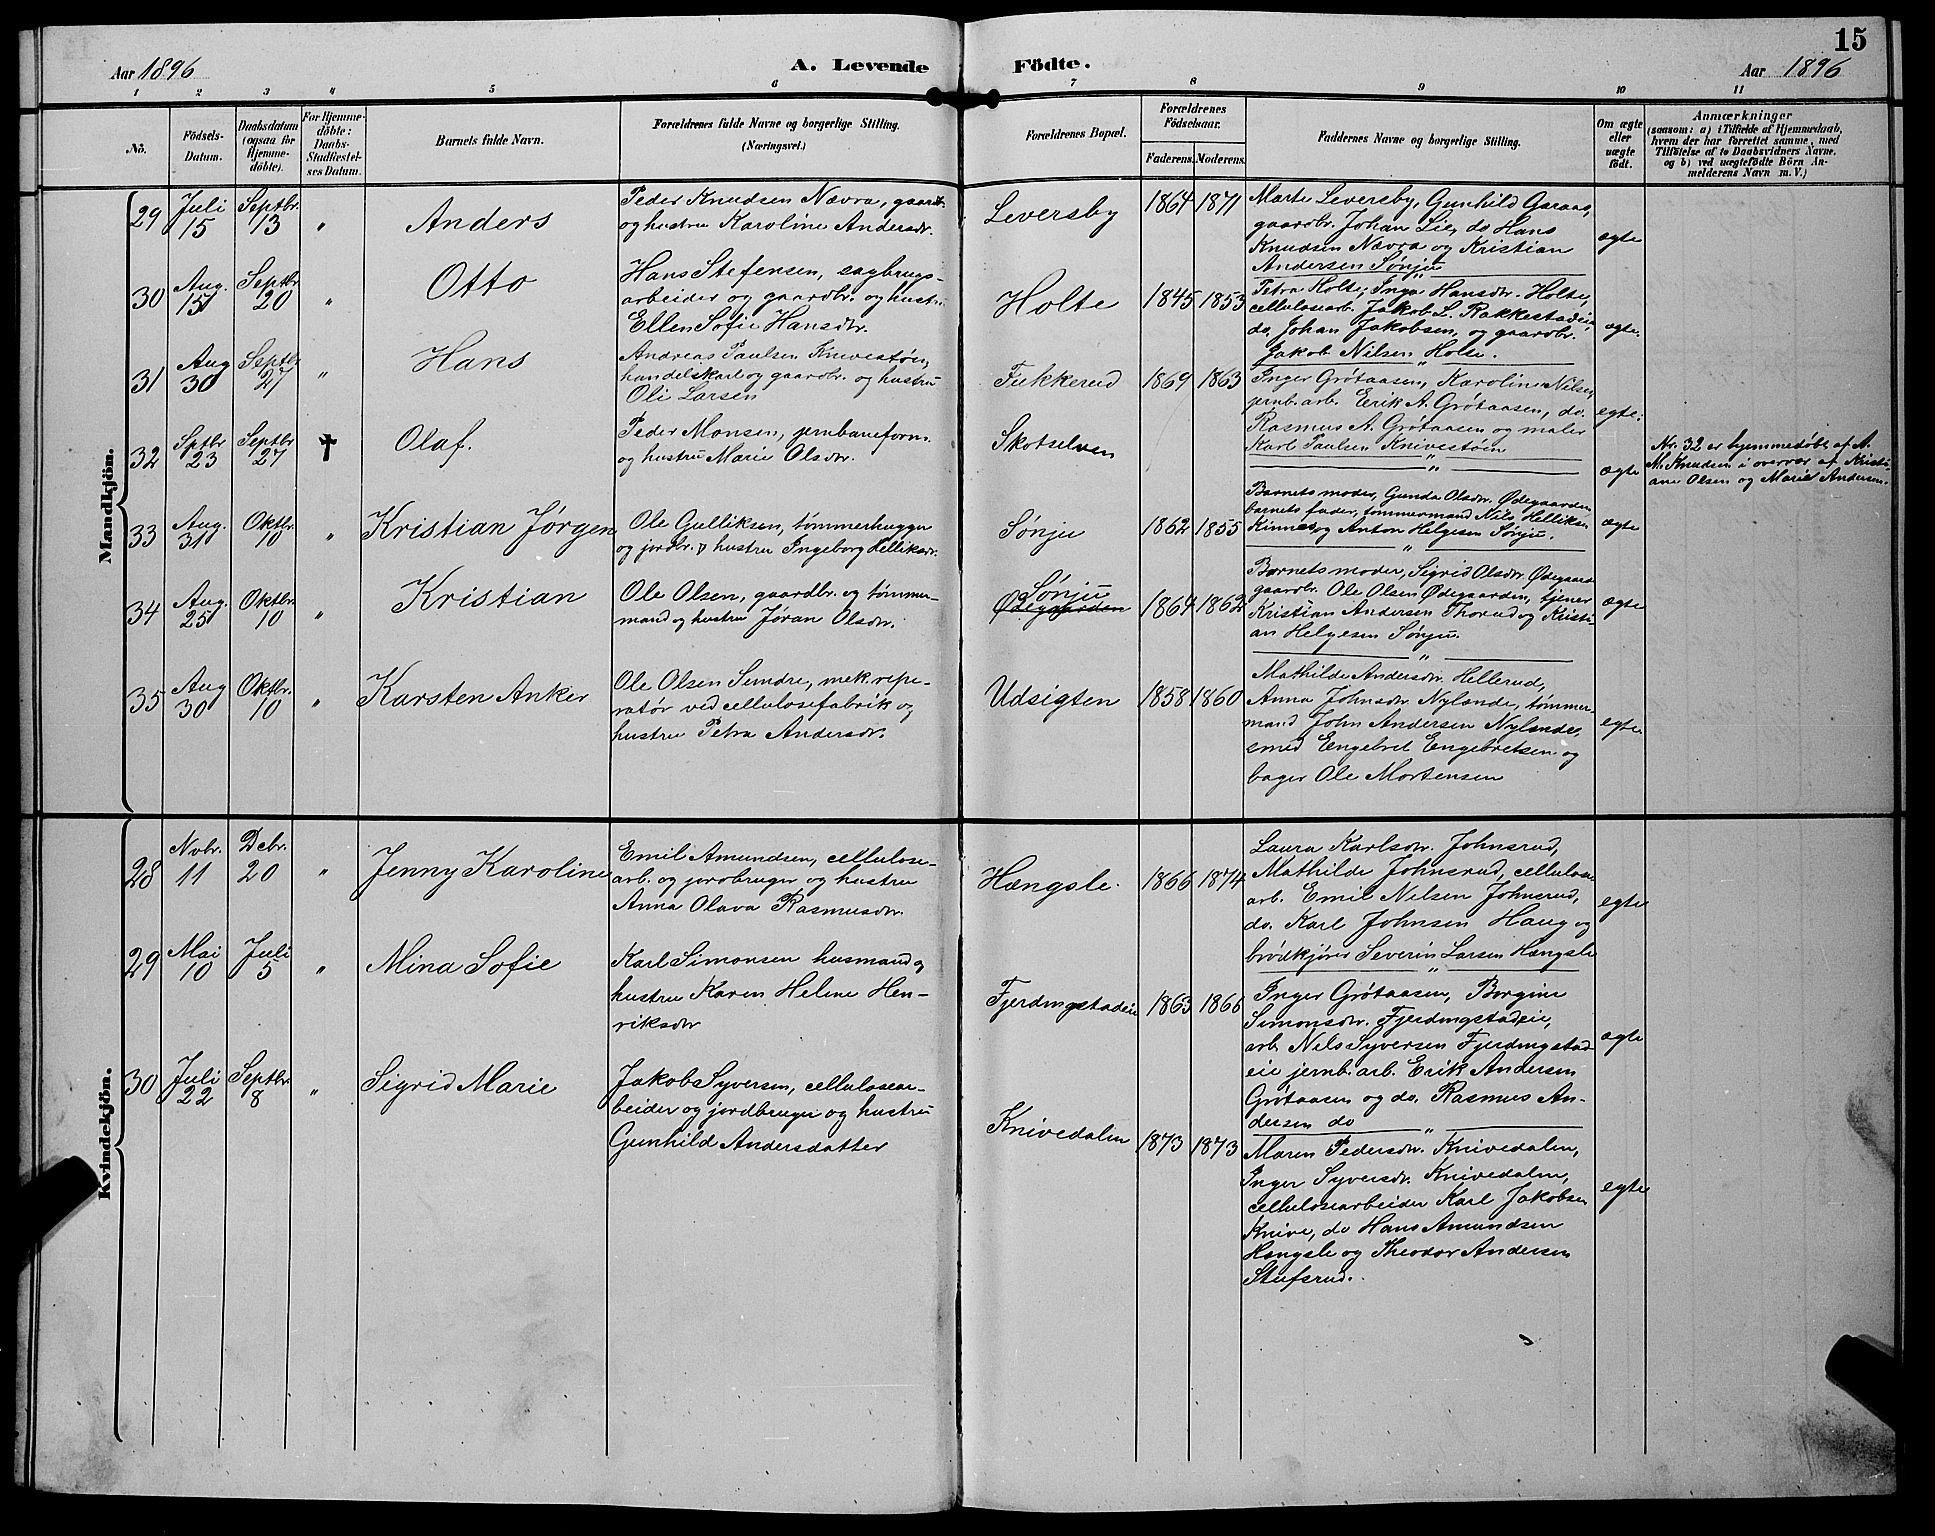 15
Aar 1896
A. Levende Födte.
Aar 1896
1 2 3 4 5 6 7 8 9 10 11
Nö.
Födsels-
Datum.
Daabsdatum
(ogsaa for
Hjemme-
döbte).
For Hjemme-
döbte:
Daabs-
Stadfæstel-
ses Datum.
Barnets fulde Navn.
Forældrenes fulde Navne og borgerlige Stilling.
(Næringsvei.)
Forældrenes Bopæl.
Forældrenes
Födselsaar.
Faderens. Moderens.
Faddernes Navne og borgerlige Stilling.
Om ægte
eller
uægte
födt.
Anmærkninger
(saasom: a) i Tilfælde af Hjemmedaab,
hvem der har forrettet samme, med
Tilföielse af to Daabsvidners Navne,
og b) ved uægtefödte Börn An-
melderens Navn m. V.)
Mandkjön.
29
Juli
15
Septbr.
13
"
Anders
Peder Knudsen Nævra, gaardbr.
og hustru Karoline Andersdr.
Leversby
1864 1871
Marte Leversby, Gunhild Garaas,
gaardbr. Johan Lie, do Hans
Knudsen Nævra og Kristian
Andersen Sønju
ægte
30
Aug.
15
Septbr
20
"
Otto
Hans Stefensen, sagbrugs-
arbeider og gaardbr. og hustru
Ellen Sofie Hansdr.
Holte
1845 1853
Petra Holte, Inga Hansdr. Holte,
cellulosearb. Jakob L. Rakkestadeie,
do. Johan Jakobsen, og gaardbr.
Jakob Nilsen Holte.
ægte.
31
Aug
30
Septbr
27
"
Hans
Andreas Paulsen Knivestøen,
handelskarl og gaardbr. og hustru
Oli Larsen
Fukkerud
1869 1863
Inger Grøtaasen, Karoline Nilsen,
jernb.arb. Eerik A. Grøtaasen, do.
Rasmus A. Grøtaasen og maler
Karl Paulsen Knivestøen
egte.
32
Sptbr
23
Septbr
27
†
Olaf.
Peder Monsen, jernbaneform.
og hustru Marie Olsdr.
Skotselven
"
ægte
Nr. 32 er hjemmedøbt af A.
M. Knudsen i overvær af Kristi-
ane Olsen og Marie Andersen.
33
Aug.
31
Oktbr.
10
"
Kristian Jørgen
Ole Gulliksen, tømmerhugger
og jordbr. & hustru Ingeborg Helliksdr.
Sønju
1862 1855
Barnets moder, Gunda Olsdr. Ødegaarden
barnets fader, tømmermand Nils Helliksen
Kinnes og Anton Helgesen Sønju.
ægte
34
Aug.
25
Oktbr.
10
"
Kristian
Ole Olsen, gaardbr. og tømmer-
mand og hustru Jøran Olsdr.
Sønju
Ødegaarden
1864 1862
Barnets moder, Sigrid Olsdr. Ødegaard
gaardbr. Ole Olsen Ødegaarden, tjener
Kristian Andersen Thorud og Kristi-
an Helgesen Sønju.
ægte
35
Aug
30
Oktbr.
10
"
Karsten Anker
Ole Olsen Semdre, mek. repe-
ratør ved cellulosefabrik og
hustru Petra Andersdr.
Udsigten
1858 1860
Mathilde Andersdr. Hellerud,
Anna Johnsdr. Nylande, tømmer-
mand John Andersen Nylande,
smed Engebret Engebretsen og
bager Ole Mortensen
egte
Kvindekjön.
28
Novbr.
11
Dcbr.
20
"
Jenny Karoline
Emil Amundsen, cellulose-
arb. og jordbruger og hustru
Anna Olava Rasmusdr.
Hængsle.
1866 1874
Laura Karlsdr. Johnsrud,
Mathilde Johnsrud, cellulose
arb. Emil Nilsen Johnsrud,
do. Karl Johnsen Haug og
brødkjører Severin Larsen Hængsle
egte
29
Mai
10
Juli
5
"
Mina Sofie
Karl Simonsen husmand og
hustru Karen Helene Hen-
riksdr
Fjerdingstadeie
1863 1866
Inger Grøtaasen, Borgine
Simonsdr. Fjerdingstadeie,
arb. Nils Syversen Fjerdingstad-
eie jernb. arb. Erik Andersen
Grøtaasen og do. Rasmus An-
dersen do
ægte
30
Juli
22
Septbr.
8
"
Sigrid Marie
Jakob Syversen, cellulosear-
beider og jordbruger og hustru
Gunhild Andersdatter
Knivedalen
1873 1873
Maren Pedersdr. Knivedalen,
Inger Syversdr. Knivedalen,
cellulosearbeider Karl Jakobsen
Knive, do Hans Amundsen
Hængsle og Theodor Andersen
Stufsrud.
egte